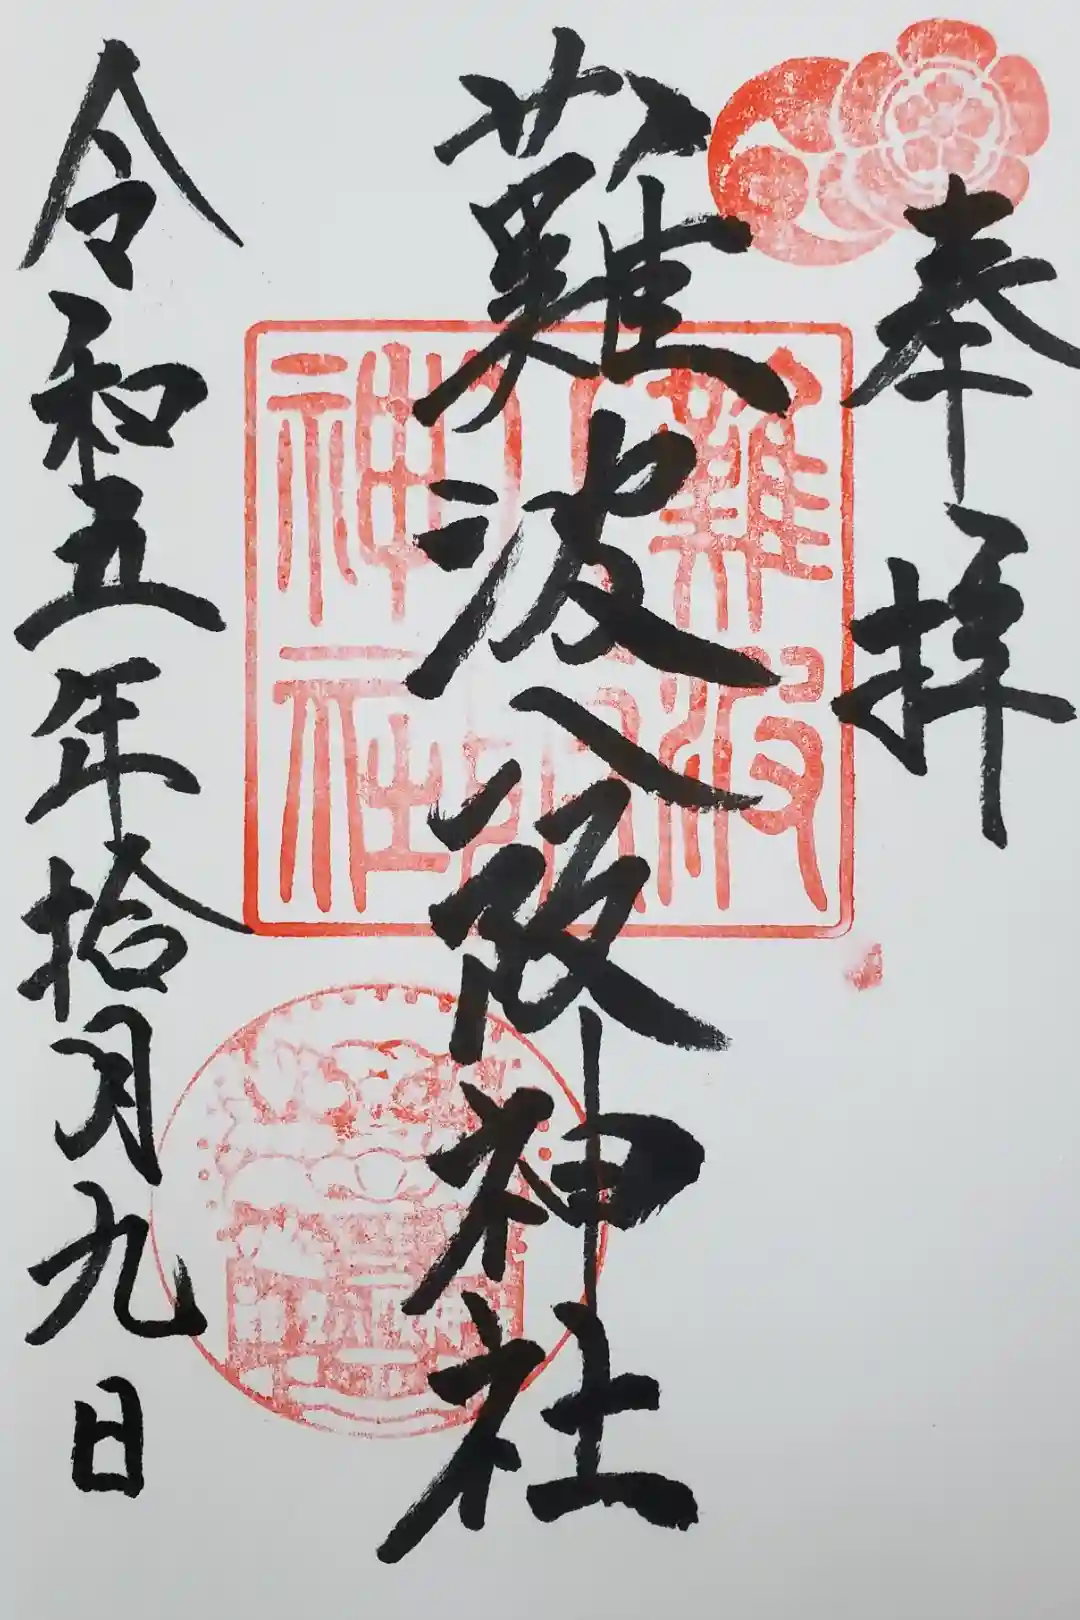 奉拝
難波八阪神社
令和五年拾月九日
難波
八阪
神社
難波八阪神社